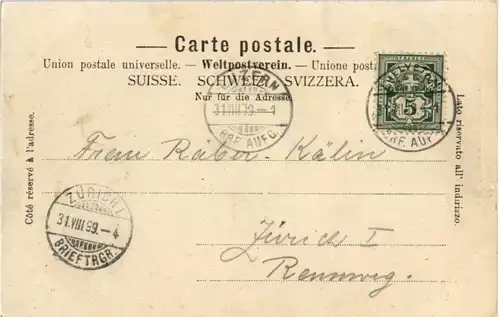 Carte postale.
Union postale universelle. — Weltpostverein. — Unione post
SUISSE. SCHWEIZ. SVIZZERA.
Nur für die Adresse
LUZERN
31.VIII.99.–1
BRF. AUFG.
HELVETIA
5
BRF. AUF
Côté réservé à l'adresse.
Lato riservato all' indirizzo.
Frau Räber-Kälin
ZÜRICH 1
31.VIII.99.–4
BRIEFTRGR.
Zürich I
Rennweg.